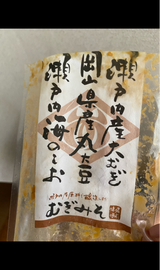 瀬戸内産大むぎ
岡山県産丸大豆
瀬戸内海のしお
むぎみそ